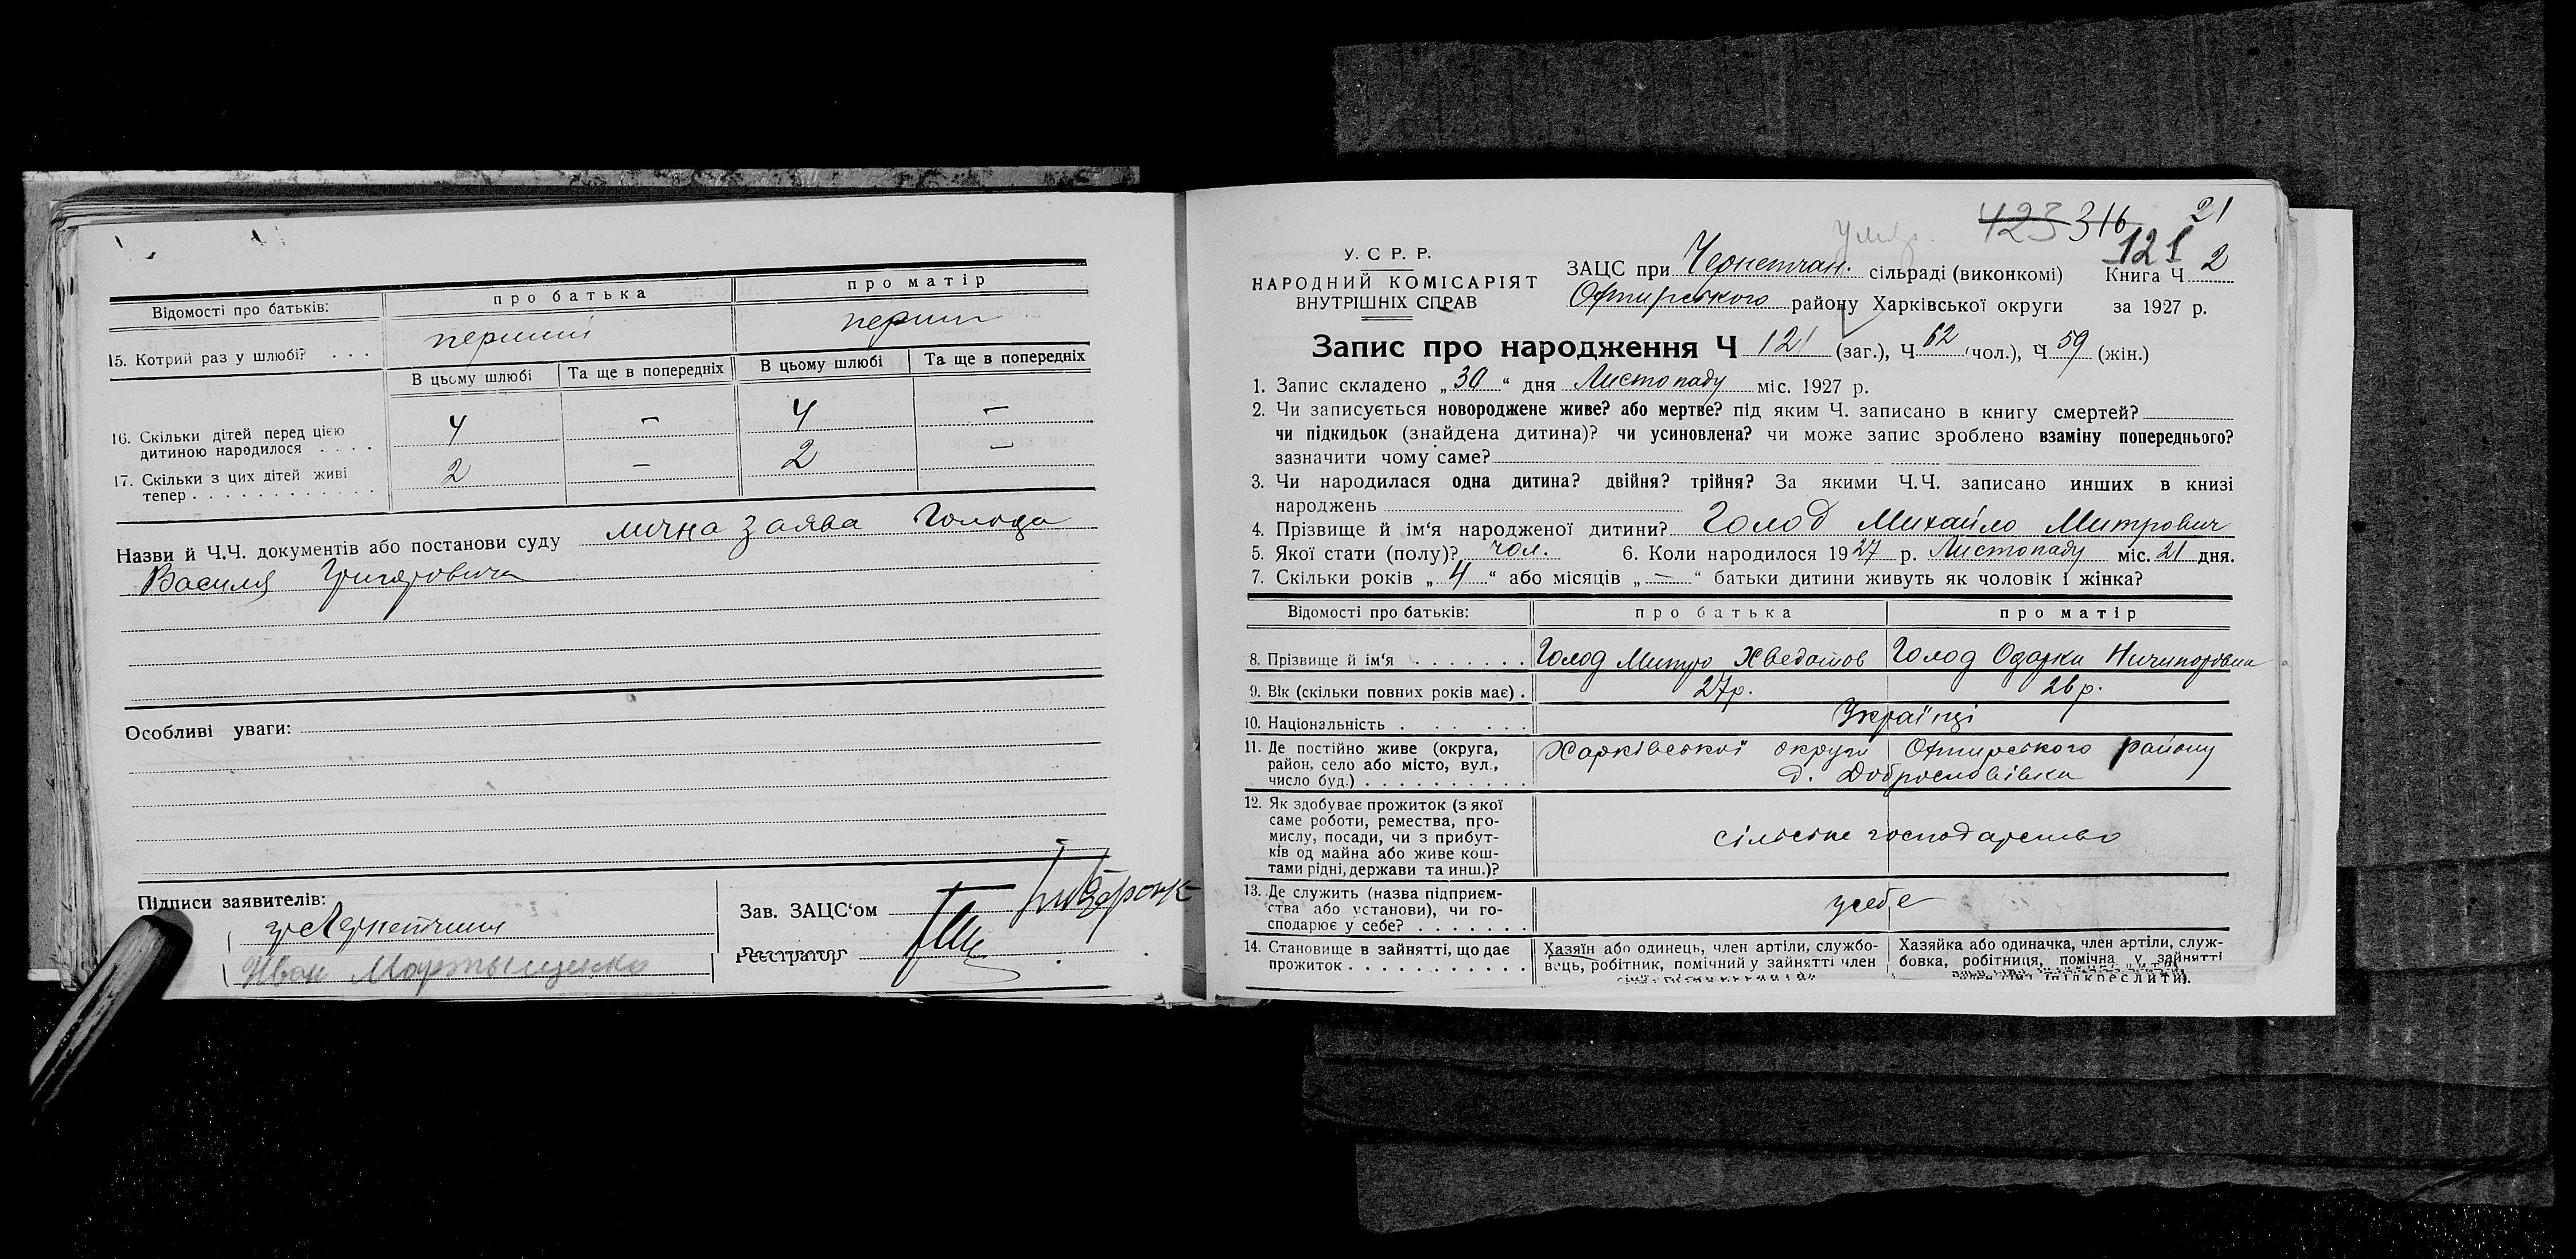 Відомості про батьків:
про батька
про матір
15. Котрий раз у шлюбі? . . .
перший
перши
В цьому шлюбі
Та ще в попередніх
В цьому шлюбі
Та ще в попередніх
16. Скільки дітей перед цією
дитиною народилося . . . .
4
—
4
—
17. Скільки з цих дітей живі
тепер . . . . . . . . . . . . .
2
—
2
—
Назви й Ч.Ч. документів або постанови суду лична заява Голода
Василя Григоровича
Особливі уваги:
Підписи заявителів:
Иван
Зав. ЗАЦС‘ом
Реєстратор
423 316 21
121
У. С Р. Р.
НАРОДНИЙ КОМІСАРІЯТ
ВНУТРІШНІХ СПРАВ
ЗАЦС при Чернетчан. сільраді (виконкомі) Книга Ч 2
Охтирського району Харківської округи за 1927 р.
Запис про народження Ч 121 (заг.), Ч 62 (чол.), Ч 59 (жін.)
1. Запис складено „30“ дня Листопаду міс. 1927 р.
2. Чи записується новороджене живе? або мертве? під яким Ч. записано в книгу смертей?
чи підкидьок (знайдена дитина)? чи усиновлена? чи може запис зроблено взаміну попереднього?
зазначити чому саме?
3. Чи народилася одна дитина? двійня? трійня? За якими Ч.Ч. записано инших в книзі
народжень
4. Прізвище й ім‘я народженої дитини? Голод Михайло Митрович
5. Якої стати (полу)? чол. 6. Коли народилося 1927 р. Листопаду міс. 21 дня.
7. Скільки років „4“ або місяців „—“ батьки дитини живуть як чоловік і жінка?
Відомості про батьків:
про батька
про матір
8. Прізвище й ім‘я . . . . . . .
Голод Митро Хведотов
Голод Одарка Ничипоровна
9. Вік (скільки повних років має) .
27р.
26р.
10. Національність . . . . . . .
Українці
11. Де постійно живе (округа,
район, село або місто, вул.,
число буд.) . . . . . . . . . .
Харківської округи Охтирського району
д. Доброславівка
12. Як здобуває прожиток (з якої
саме роботи, ремества, про-
мислу, посади, чи з прибут-
ків од майна або живе кош-
тами рідні, держави та инш.)?
сільське господарство
13. Де служить (назва підприєм-
ства або установи), чи го-
сподарює у себе? . . . . . . .
усебе
14. Становище в зайнятті, що дає
прожиток . . . . . . . . . . .
Хазяїн або одинець, член артіли, службо-
вець, робітник, помічний у зайнятті член
Хазяйка або одиначка, член артіли, служ-
бовка, робітниця, помічна у зайнятті
(підкреслити).